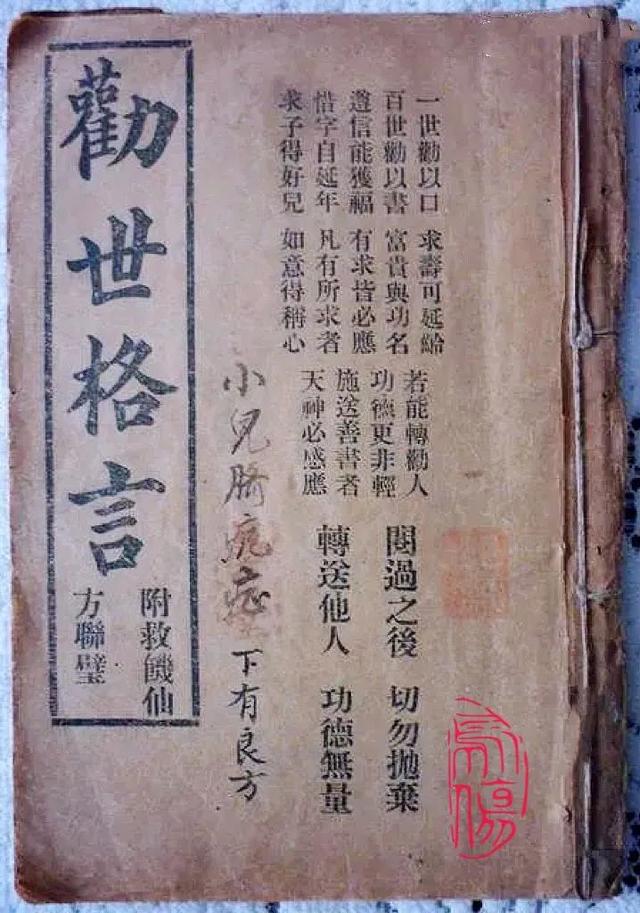 一世勸以口
百世勸以書
遵信能獲福
惜字自延年
求子得好兒
求壽可延齡
富貴與功名
有求皆必應
凡有所求者
如意得稱心
若能轉勸人
功德更非輕
施送善書者
天神必感應
閱過之後 切勿拋棄
轉送他人 功德無量
小兒臍疮症下有良方
勸世格言
附救饑仙
方聯璧